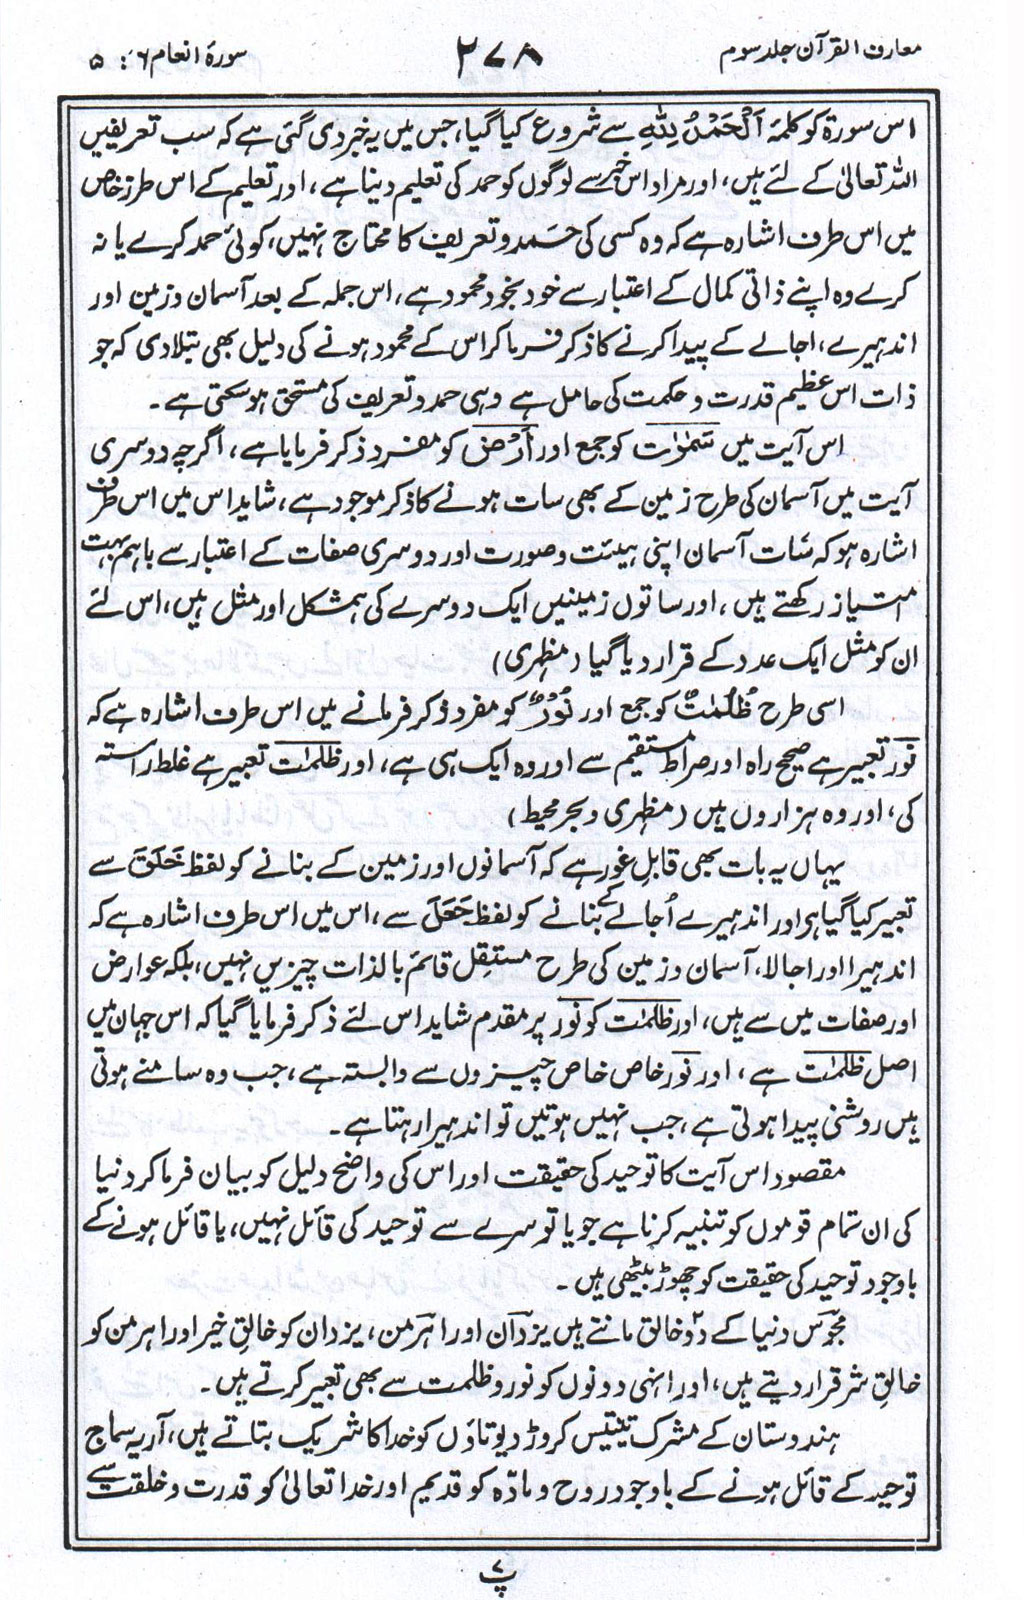 معارف القرآن جلد سوم
۲۷۸
سورۂ انعام ۶ : ۵
اس سورۃ کو کلمۂ اَلْحَمْدُ لِلّٰہِ سے شروع کیا گیا، جس میں یہ خبر دی گئی ہے کہ سب تعریفیں
اللہ تعالیٰ کے لئے ہیں، اور مراد اس خبر سے لوگوں کو حمد کی تعلیم دینا ہے، اور تعلیم کے اس طرز خاص
میں اس طرف اشارہ ہے کہ وہ کسی کی حمد و تعریف کا محتاج نہیں، کوئی حمد کرے یا نہ
کرے وہ اپنے ذاتی کمال کے اعتبار سے خود بخود محمود ہے، اس جملہ کے بعد آسمان و زمین اور
اندہیرے، اجالے کے پیدا کرنے کا ذکر فرما کر اس کے محمود ہونے کی دلیل بھی بتلا دی کہ جو
ذات اس عظیم قدرت و حکمت کی حامل ہے وہی حمد و تعریف کی مستحق ہو سکتی ہے۔
اس آیت میں سَمٰوٰت کو جمع اور اَرْضَ کو مفرد ذکر فرمایا ہے، اگرچہ دوسری
آیت میں آسمان کی طرح زمین کے بھی سات ہونے کا ذکر موجود ہے، شاید اس میں اس طرف
اشارہ ہو کہ سات آسمان اپنی ہیئت و صورت اور دوسری صفات کے اعتبار سے باہم بہت
امتیاز رکھتے ہیں، اور ساتوں زمینیں ایک دوسرے کی ہمشکل اور مثل ہیں، اس لئے
ان کو مثل ایک عدد کے قرار دیا گیا (مظہری)
اسی طرح ظُلُمٰتٌ کو جمع اور نُوْرٌ کو مفرد ذکر فرمانے میں اس طرف اشارہ ہے کہ
نور تعبیر ہے صحیح راہ اور صراط مستقیم سے اور وہ ایک ہی ہے، اور ظلمات تعبیر ہے غلط راستہ
کی، اور وہ ہزاروں ہیں (مظہری و بحر محیط)
یہاں یہ بات بھی قابلِ غور ہے کہ آسمانوں اور زمین کے بنانے کو لفظ خَلَقَ سے
تعبیر کیا گیا ہی اور اندہیرے اُجالے کے بنانے کو لفظ جَعَلَ سے، اس میں اس طرف اشارہ ہے کہ
اندہیرا اور اجالا، آسمان و زمین کی طرح مستقِل قائم بالذات چیزیں نہیں، بلکہ عوارض
اور صفات میں سے ہیں، اور ظلمٰت کو نور پر مقدم شاید اس لئے ذکر فرمایا گیا کہ اس جہان میں
اصل ظلمٰت ہے، اور نور خاص خاص چیزوں سے وابستہ ہے، جب وہ سامنے ہوتی
ہیں روشنی پیدا ہوتی ہے، جب نہیں ہوتیں تو اندہیرا رہتا ہے۔
مقصود اس آیت کا توحید کی حقیقت اور اس کی واضح دلیل کو بیان فرما کر دنیا
کی ان تمام قوموں کو تنبیہ کرنا ہے جو یا تو سرے سے توحید کی قائل نہیں، یا قائل ہونے کے
باوجود توحید کی حقیقت کو چھوڑ بیٹھی ہیں۔
مجوس دنیا کے دو خالق مانتے ہیں یزدان اور اہرمن، یزدان کو خالقِ خیر اور اہرمن کو
خالقِ شر قرار دیتے ہیں، اور انہی دونوں کو نور و ظلمت سے بھی تعبیر کرتے ہیں۔
ہندوستان کے مشرک تینتیس کروڑ دیوتاؤں کو خدا کا شریک بتاتے ہیں، آریہ سماج
توحید کے قائل ہونے کے باوجود روح و مادّہ کو قدیم اور خدا تعالیٰ کو قدرت و خلقت سے
پ ۷